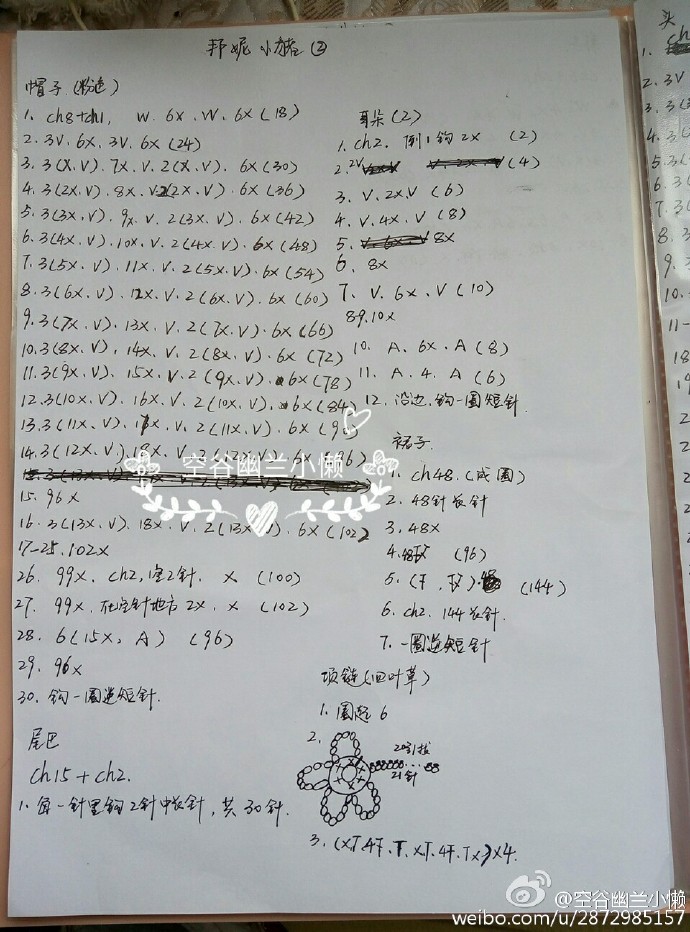 邦妮小猪②
帽子(粉色)
1. ch8+ch1, W. 6X. W. 6X(18)
2. 3V. 6X. 3V. 6X(24)
3. 3(X.V). 7X. V. 2(X.V). 6X(30)
4. 3(2X.V). 8X. V. 2(2X.V). 6X(36)
5. 3(3X.V). 9X. V. 2(3X.V). 6X(42)
6. 3(4X.V). 10X. V. 2(4X.V). 6X(48)
7. 3(5X.V). 11X. V. 2(5X.V). 6X(54)
8. 3(6X.V). 12X. V. 2(6X.V). 6X(60)
9. 3(7X.V). 13X. V. 2(7X.V). 6X(66)
10. 3(8X.V). 14X. V. 2(8X.V). 6X(72)
11. 3(9X.V). 15X. V. 2(9X.V). 6X(78)
12. 3(10X.V). 16X. V. 2(10X.V). 6X(84)
13. 3(11X.V). 17X. V. 2(11X.V). 6X(9
14. 3(12X.V). 18X. V. 2(12X.V). 6X(96)
15. 96X
16. 3(13X.V). 18X. V. 2(13X.V). 6X(102)
17-25. 102X
26. 99X. ch2, 空2针. X (100)
27. 99X. 在空针地方2X. X (102)
28. 6(15X, A) (96)
29. 96X
30. 钩一圈逆短针.
尾巴
ch15+ch2.
1. 每一针里钩2针中长针, 共30针.
耳朵(2)
1. ch2. 倒1钩2X (2)
2. 2V (4)
3. V. 2X. V (6)
4. V. 4X. V (8)
5. 8X
6. 8X
7. V. 6X. V (10)
89. 10X
10. A. 6X. A (8)
11. A. 4. A (6)
12. 沿边.钩一圈短针.
裙子.
1. ch48. (成圈)
2. 48针长针
3. 48X
4. (96)
5. (144)
6. ch2. 144长针.
7. 一圈逆短针
项链(四叶草)
1. 圈起6
2.
20引拔
21针
3. (XT.4F.T.XT.4F.TX)X4.
空谷幽兰小懒
头
ch
1.
2. 3V
3. 3(
4. 3(
5. 3(
6. 3(
7. 3(
8. 3(
9. 3
10.
11-
18
@空谷幽兰小懒
weibo.com/u/2872985157